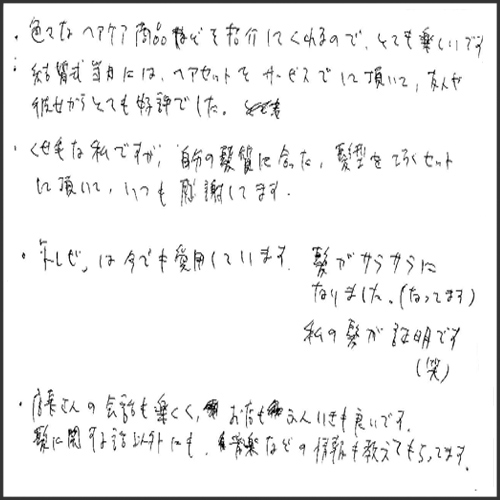 ・色々なヘアケア商品などを紹介してくれるので、とても楽しいです
・結婚式当日には、ヘアセットをサービスでして頂いて、友人や
彼女からとても好評でした。
・くせ毛な私ですが、自分の髪質に合った、髪型を上手くセット
して頂いて、いつも感謝してます。
・は今でも愛用しています。髪がサラサラに
なりました。(なってます)
私の髪が証明です
(笑)
・店長さんの会話も楽しく、お店もふんいきも良いです。
髪に関する話以外にも、音楽などの情報も教えてもらってます。